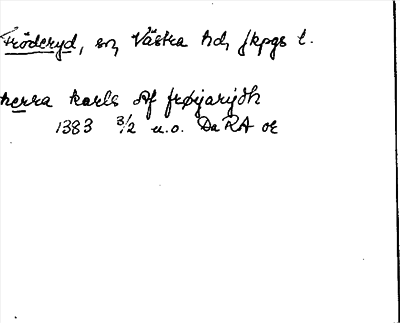 Fröderyd, sn, Västra hd, Jkpgs l.
herra karls Af frøyarydh
1383 3/2 u.o. DaRA or